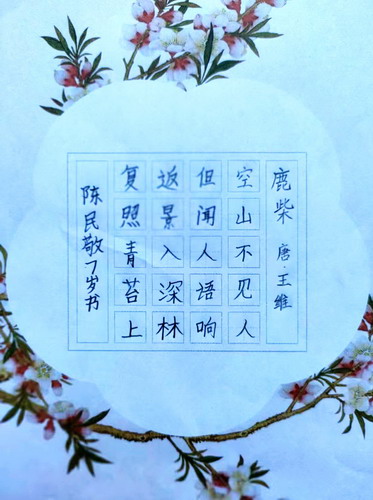 鹿柴 唐·王维
空山不见人
但闻人语响
返景入深林
复照青苔上
陈民敬7岁书